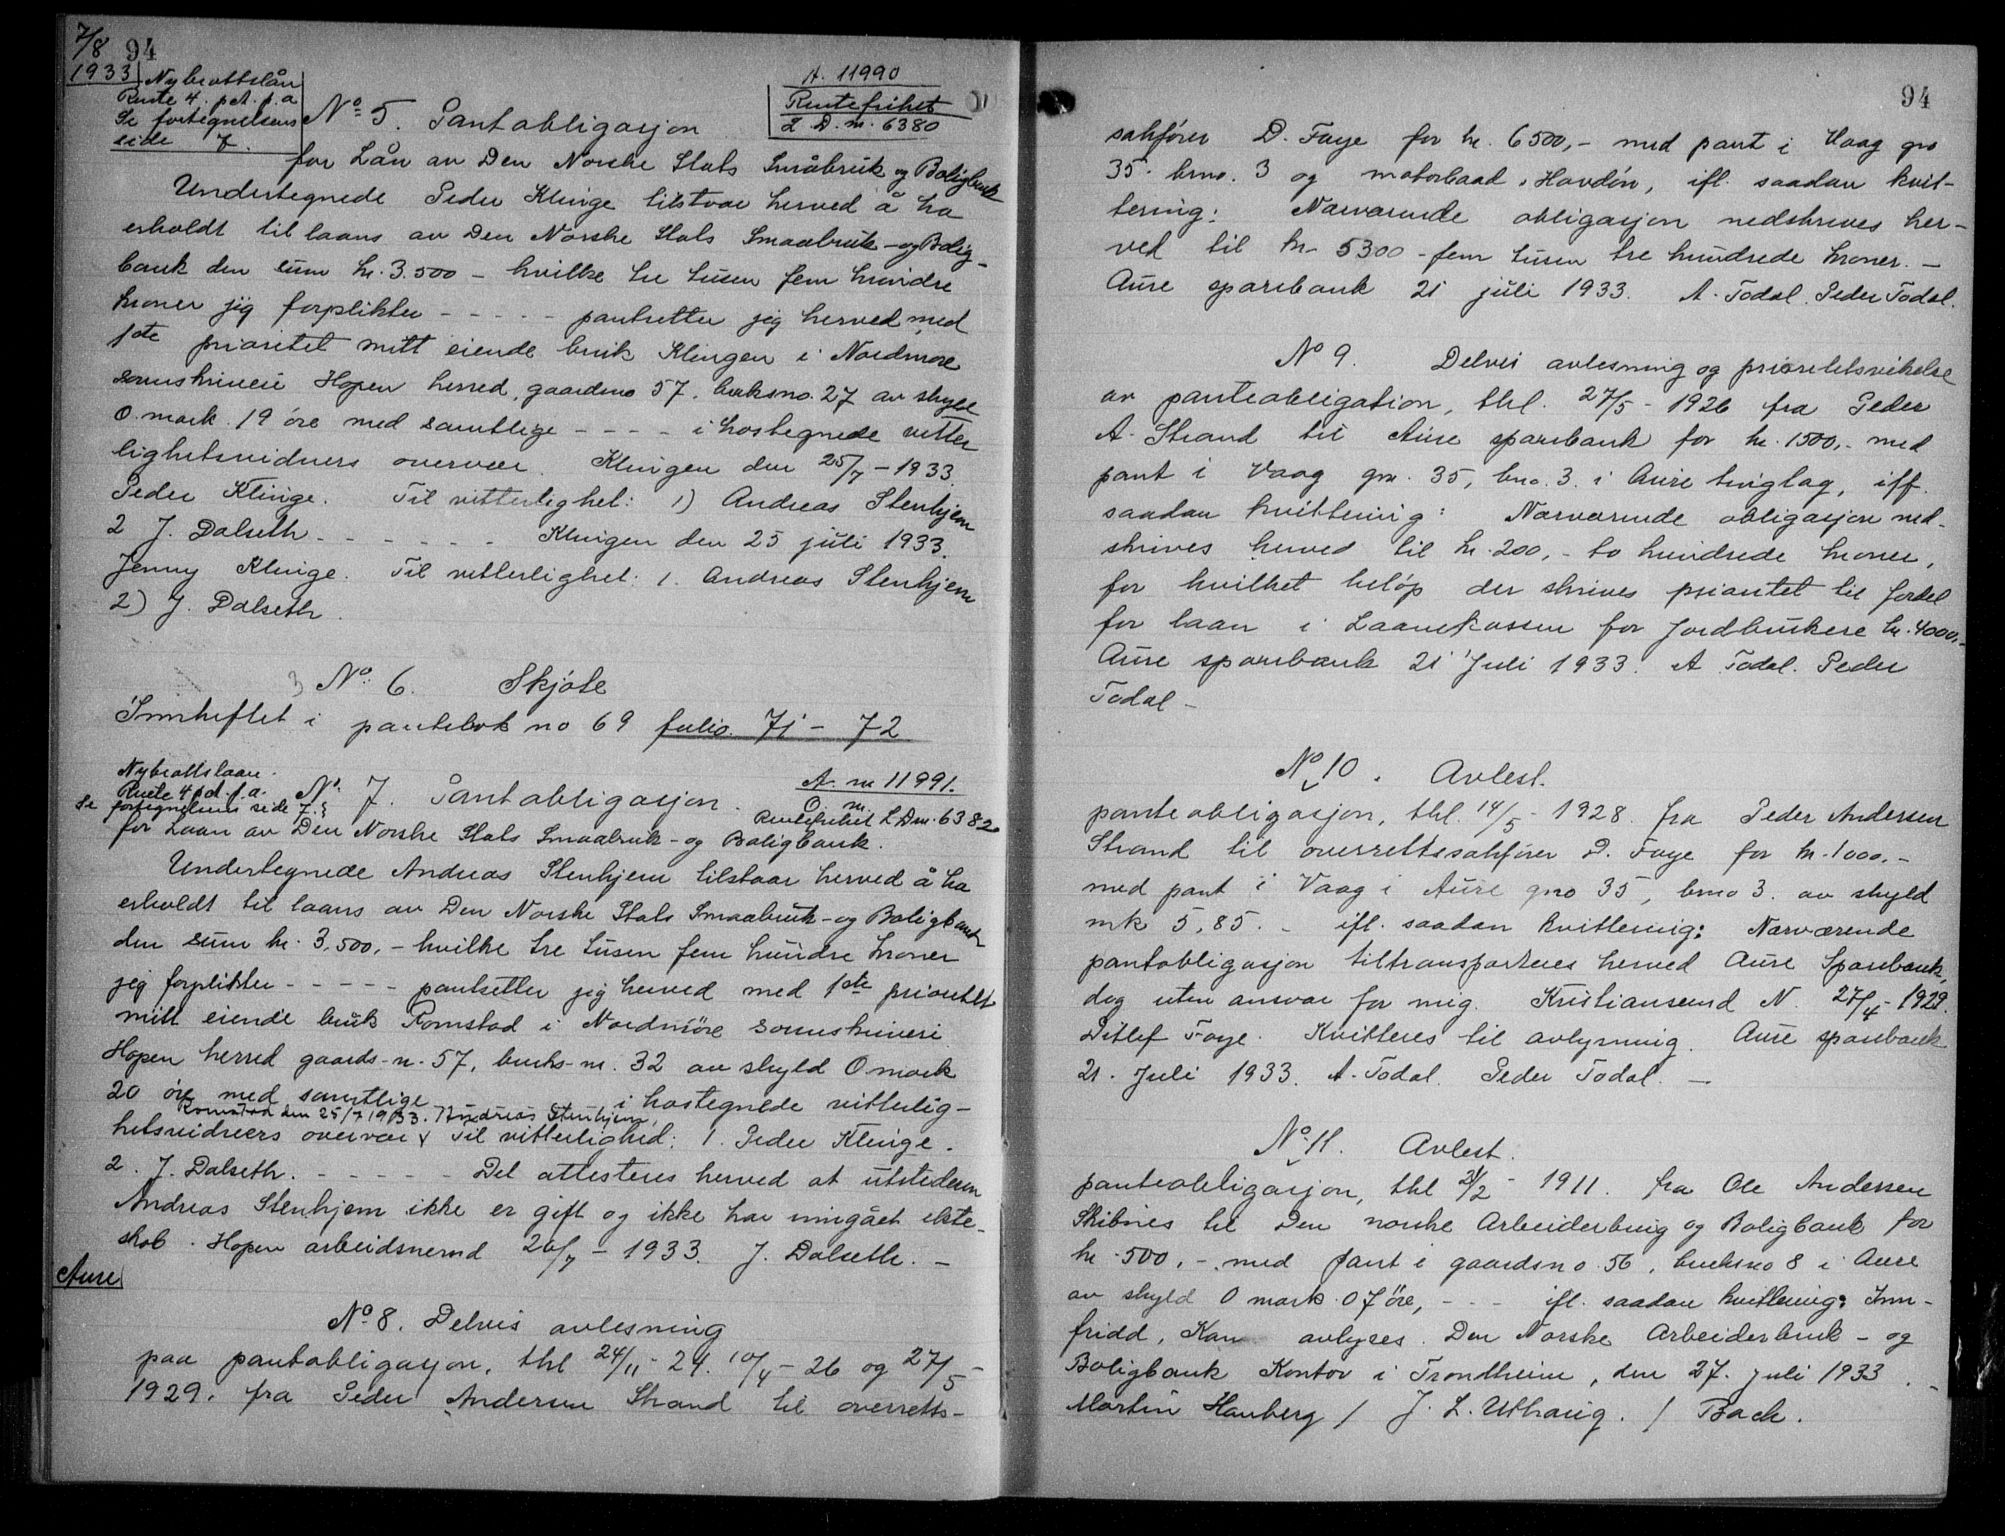 7/8 94
1933 Nybrottslån
Rente 4. pct. p. a
Se fortegnelsens
side 7.
A. 11990
Rentefrihet
L. D. nr. 6380
No 5. Pantobligasjon
for Lån av Den Norske Stats Småbruk og Boligbank
Undertegnede Peder Klinge tilstaar herved å ha
erholdt til laans av Den Norske Stats Smaabruk- og Bolig-
bank den sum kr. 3.500 - hvilke tre tusen fem hundre
kroner jeg forplikter - - - - - pantsetter jeg herved med
1ste prioritet mitt eiende bruk Klingen i Nordmøre
sorenskriveri Hopen herred, gaardsno 57, bruksno. 27 av skyld
0. mark 19 öre med samtlige - - - - i hostegnede vitter
lighetsvidners overvær. Klingen den 25/7 - 1933.
Peder Klinge. Til vitterlighet: 1) Andreas Stenhjem
2 J. Dalseth - - - - - - Klingen den 25 juli 1933.
Jenny Klinge. Til vitterlighet: 1. Andreas Stenhjem
2) J. Dalseth.
No 6. Skjøte
Innheftet i pantebok no 69 folio. 71 - 72
Nybrottslaan.
Rente 4 pct. p. a.
Se fortegnelsens side 7.
No. 7. Pantobligasjon.
A. nr 11991.
Rentefrihet L.D.nr. 6382
for Laan av Den Norske Stats Smaabruk- og Boligbank.
Undertegnede Andreas Stenhjem tilstaar herved å ha
erholdt til laans av Den Norske Stats Smaabruk- og Boligbank
den sum kr. 3.500,- hvilke tre tusen fem hundre kroner
jeg forplikter - - - - - pantsetter jeg herved med 1ste prioritet
mitt eiende bruk Romstad i Nordmöre sorenskriveri
Hopen herred gaards-n. 57, bruks-nr. 32 av skyld 0 mark
20 öre med samtlige i hostegnede vitterlig-
Romstad den 25/7 1933. Andreas Stenhjem,
hetsvidners overvær Til vitterlighed: 1. Peder Klinge.
2. J. Dalseth. - - - - - Det attesteres herved at utstederen
Andreas Stenhjem ikke er gift og ikke har inngået ekte-
skab. Hopen arbeidsnemnd 26/7 - 1933. J. Dalseth. -
Aure
No 8. Delvis avlesning
paa pantobligasjon, thl 24/11 - 24. 10/4 - 26 og 27/5 -
1929. fra Peder Andersen Strand til overretts-
94
sakfører D. Faye for kr. 6500,- med pant i Vaag gno
35. brno. 3 og motorbaad "Havdön", ifl. saadan kvit-
tering: Nærværende obligasjon nedskrives her-
ved til kr 5300 - fem tusen tre hundrede kroner. -
Aure sparebank 21 juli 1933. A. Todal. Peder Todal.
No 9. Delvis avlesning og prioritetsvikelse
av panteobligation, thl. 27/5 - 1926 fra Peder
A. Strand til Aure sparebank for kr. 1500,- med
pant i Vaag gnr. 35, bno. 3. i Aure tinglag, iff.
saadan kvittering: Nærværende obligasjon ned-
skrives herved til kr. 200,- to hundrede kroner,
for hvilket beløp der skrives prioritet til fordel
for laan i Laanekassen for Jordbrukere kr. 4000,-
Aure sparebank 21 Juli 1933. A Todal. Peder
Todal -
No 10. Avlest.
panteobligasjon, thl. 14/5 - 1928. fra Peder Andersen
Strand til overrettssakfører D. Faye for kr. 1000,-
med pant i Vaag i Aure gno 35, brno 3. av skyld
mk 5,85. - ifl. saadan kvittering: Nærværende
pantobligasjon tiltransporteres herved Aure Sparebank,
dog uten ansvar for mig. Kristiansund N. 27/4 - 1929.
Ditlef Faye. Kvitteres til avlysning. Aure sparebank
21. Juli 1933. A. Todal. Peder Todal. -
No 11. Avlest.
panteobligasjon, thl 21/2 - 1911. fra Ole Andersen
Skibnes til Den norske Arbeiderbrug og Boligbank for
kr 500,- med pant i gaardsno. 56, bruksno 8 i Aure
av skyld 0 mark 07 öre, - - - ifl. saadan kvittering: Inn-
fridd, Kan avlyses. Den Norske Arbeiderbruk - og
Boligbank Kontor i Trondheim, den 27. juli 1933. -
Martin Hauberg / J. L. Uthaug. / Back.